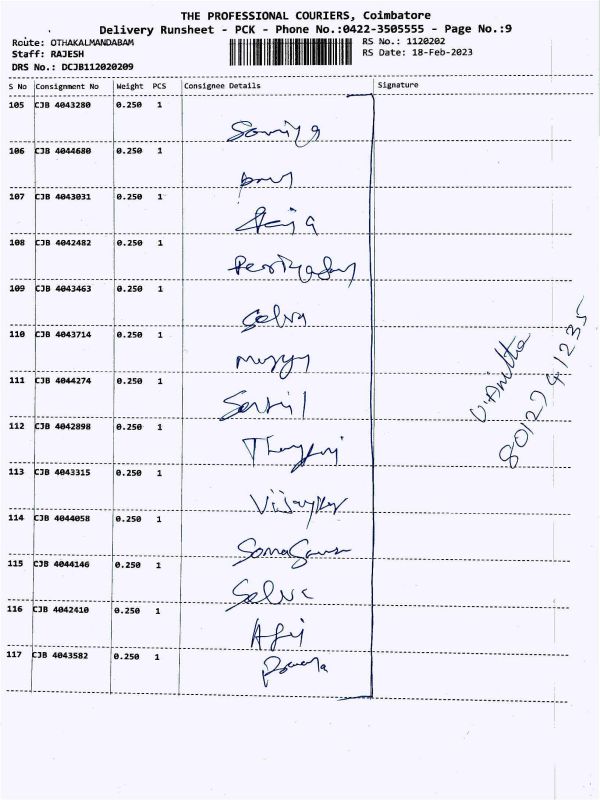 THE PROFESSIONAL COURIERS, Coimbatore
Delivery Runsheet - PCK - Phone No.:0422-3505555 - Page No.:9
Route: OTHAKALMANDABAM
RS No.: 1120202
Staff: RAJESH
RS Date: 18-Feb-2023
DRS No.: DCJB112020209
S No Consignment No Weight PCS Consignee Details Signature
105 CJB 4043280 0.250 1
106 CJB 4044680 0.250 1
107 CJB 4043031 0.250 1
108 CJB 4042482 0.250 1
109 CJB 4043463 0.250 1
Selva
110 CJB 4043714 0.250 1
111 CJB 4044274 0.250 1
112 CJB 4042898 0.250 1
113 CJB 4043315 0.250 1
114 CJB 4044058 0.250 1
115 CJB 4044146 0.250 1
Selva
116 CJB 4042410 0.250 1
117 CJB 4043582 0.250 1
V.Anitha
80127 41235